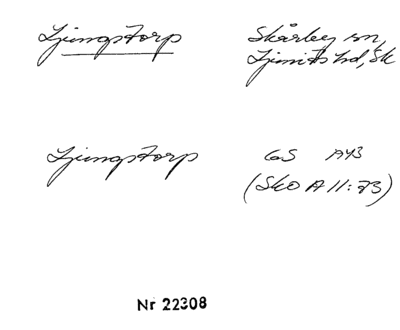 Ljungstorp
Skårby sn,
Ljunits hd, Sk
Ljungstorp
GS 1943
(SkO A 11:73)
Nr 22308